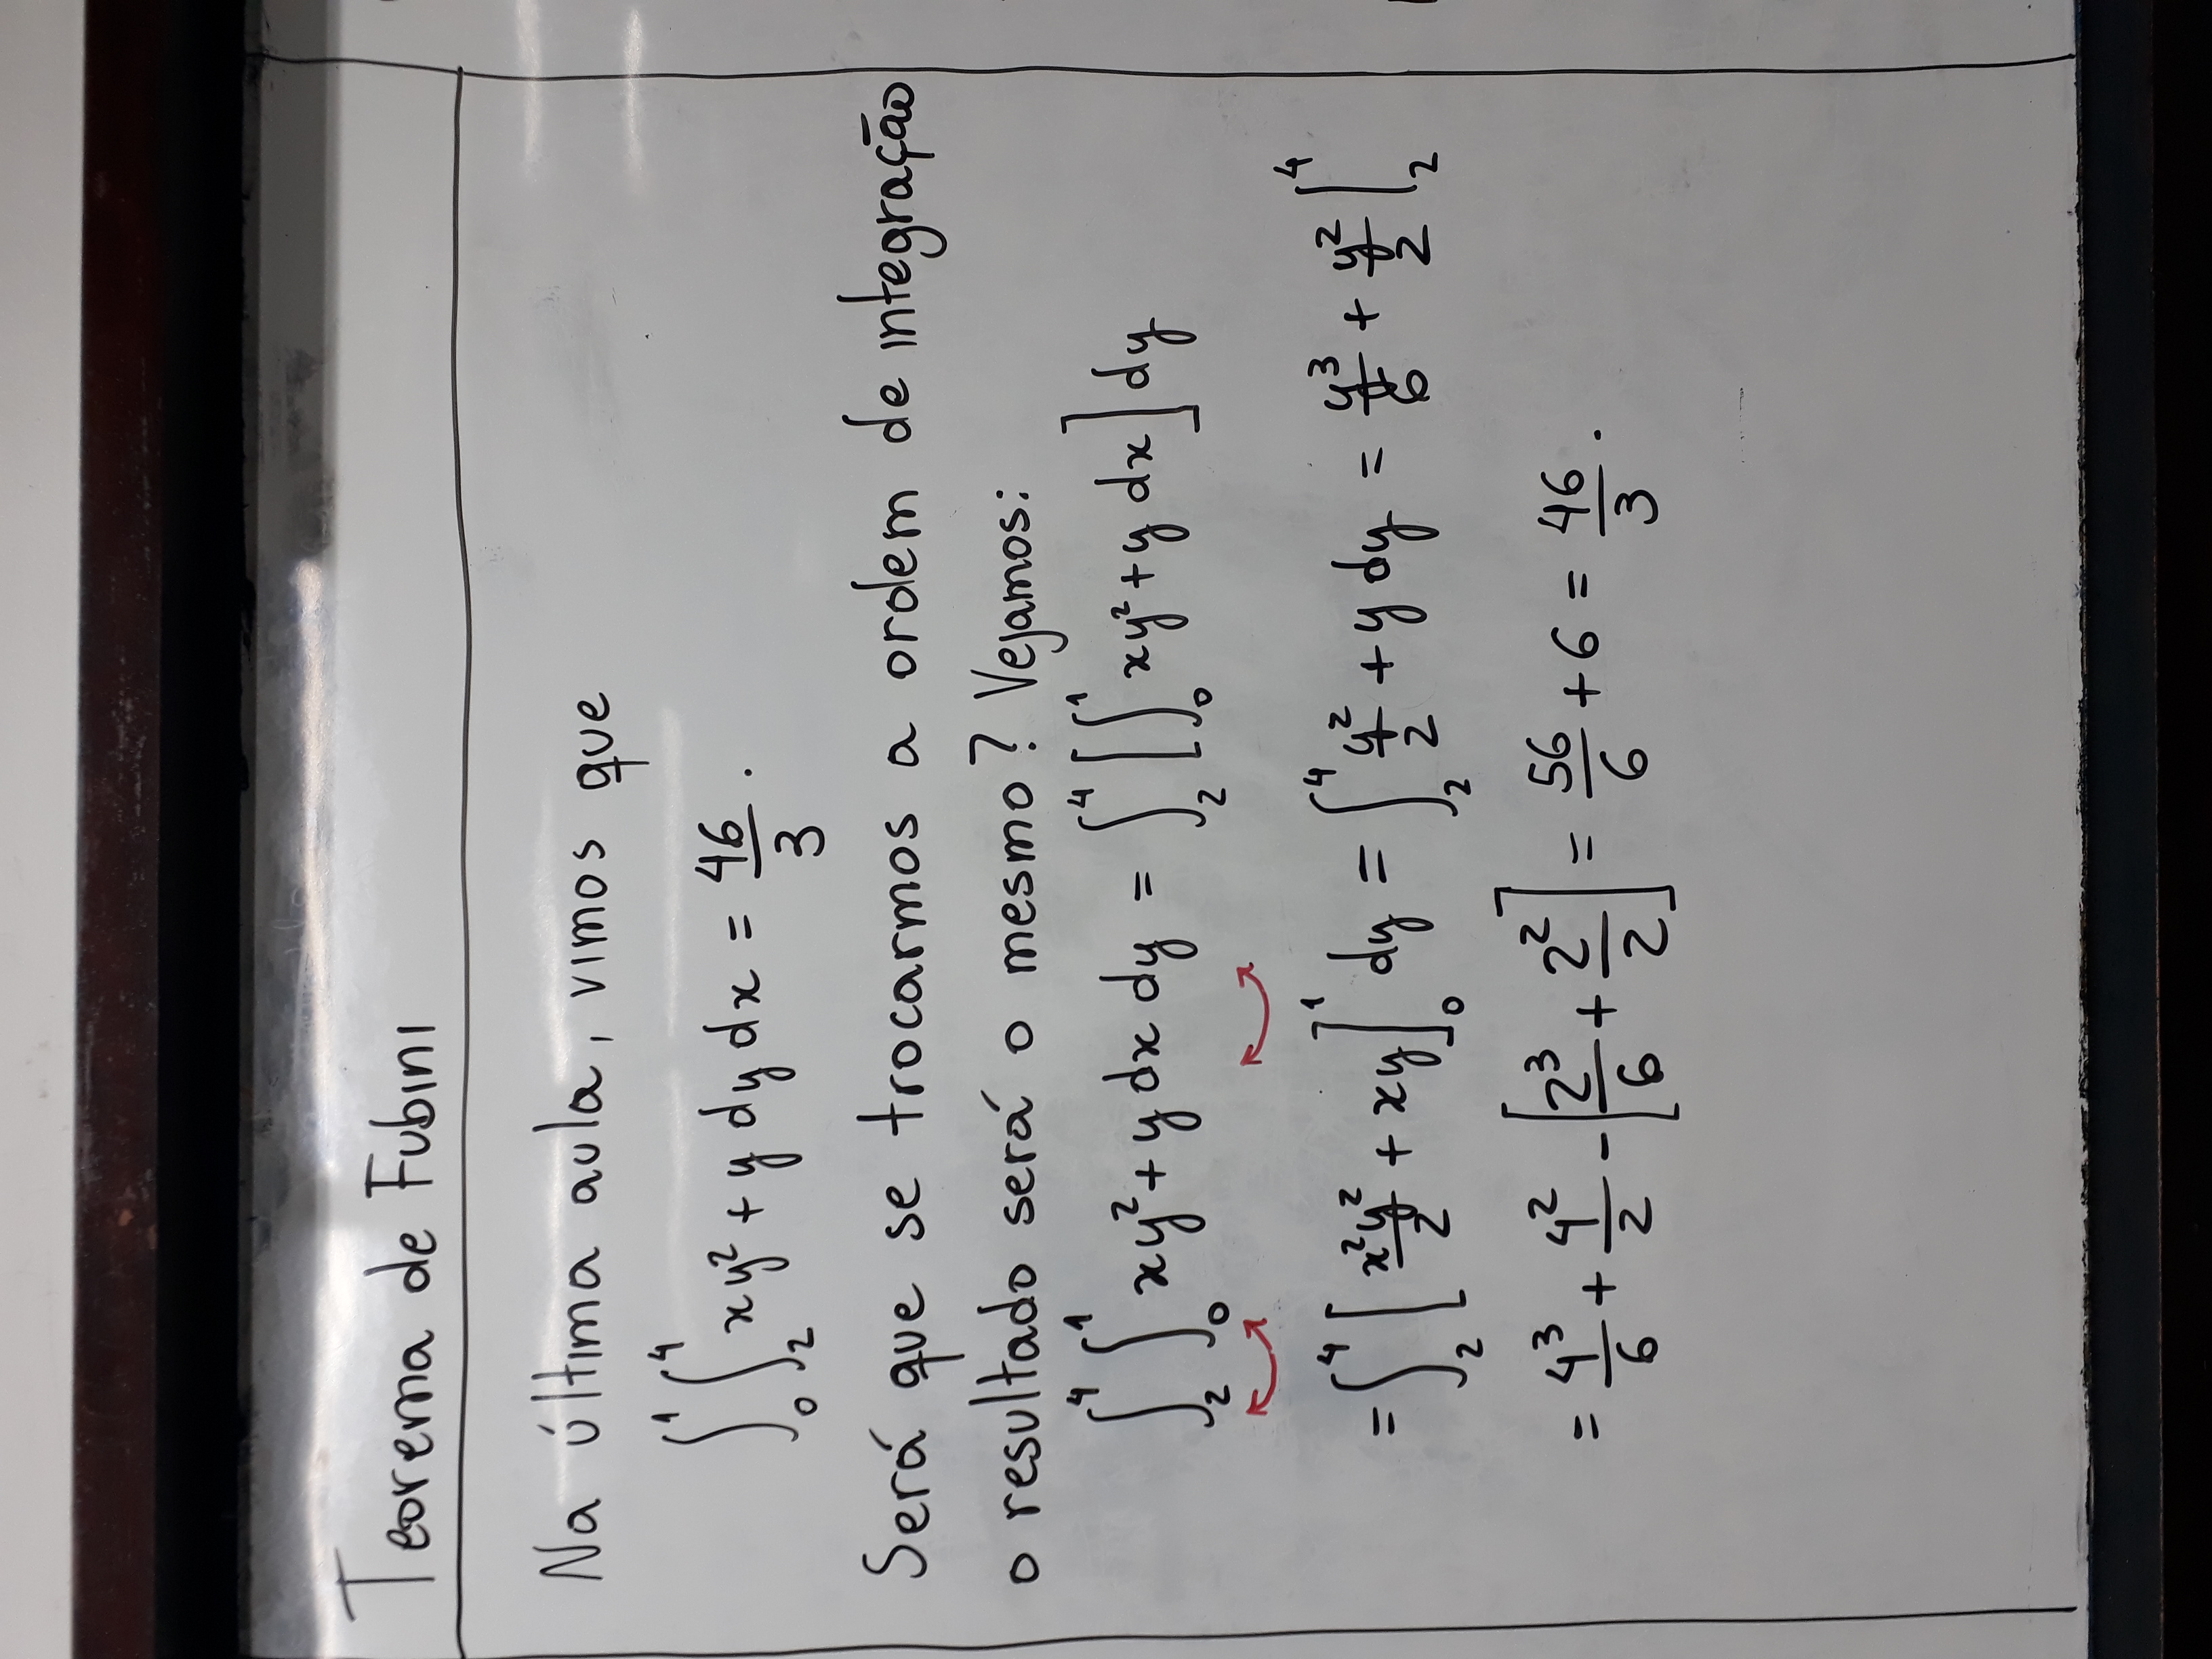 Teorema de Fubini
Na última aula, vimos que
∫₀¹ ∫₂⁴ xy² + y dy dx = 46/3 .
Será que se trocarmos a ordem de integração
o resultado será o mesmo? Vejamos:
∫₂⁴ ∫₀¹ xy² + y dx dy = ∫₂⁴ [∫₀¹ xy² + y dx] dy
= ∫₂⁴ [x²y²/2 + xy]₀¹ dy = ∫₂⁴ y²/2 + y dy = y³/6 + y²/2 |₂⁴
= 4³/6 + 4²/2 - [2³/6 + 2²/2] = 56/6 + 6 = 46/3 .